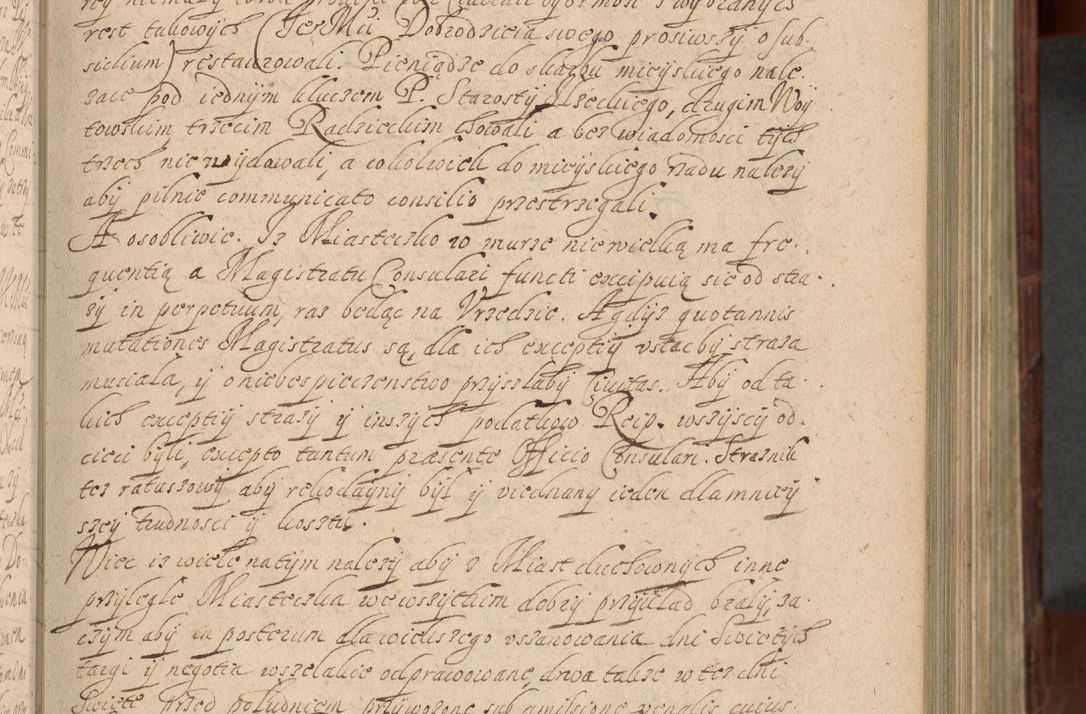 rest takowych (JesMci Dobrodzieia swego prosiwszy o sub-
sidium) restaurowali. Pieniądze do skarbu mieyskiego nale-
zace pod iednym kluczem P. Starosty Ilzeckiego, drugim Woy
towskim trzecim Radzieckim chowali a bez wiadomosci tych
trzech nie wydowali, a cokolwiek do mieyskiego rządu nalezy
aby pilnie communicato consilio przestrzegali.
A osobliwie. Iz Miasteczko w murze niewielką ma fre-
quentią a Magistratu Consulari functi excipuią sie od stra-
zy in perpetuum, raz bedąc na Vrzedzie. A gdyz quotannis
mutationes Magistratus są, dla ich exceptiy vstacby straza
musiała, y o niebespieczenstwo przyszłaby Ciuitas. Aby od ta-
kich exceptiy strazy y inszych podatkow Reip. wszyscy od-
cieci byli, excepto tantum præsente Officio Consulari. Straznik
tez ratuszowy aby rekodayny był y viednany ieden dla mniey
szey trudnosci y kosztu.
Wiec iz wiele natym nalezy aby z Miast duchownych inne
przyległe Miasteczka wewszytkim dobry przykład brały, za-
czym aby in posterum dla wiekszego vszanowania dni Swietych
targi y negotia wszelakie odprawowane, drwa takze w tez dni
Swiete przed południem przywozone sub amissione venalis cuius-